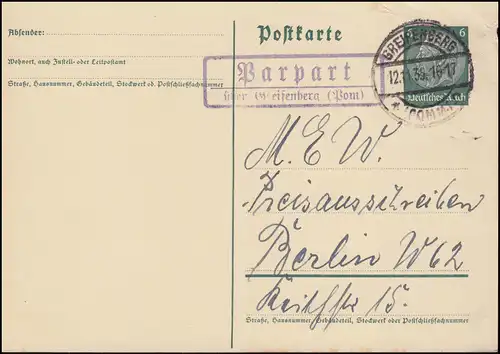 Absender:
Wohnort, auch Zustell- oder Leitpostamt
Straße, Hausnummer, Gebäudeteil, Stockwerk od. Postschließfachnummer
Postkarte
Parpart
über Greifenberg (Pom)
GREIFENBERG
16-17
(POMM)
6
Deutsches Reich
M. E. W.
Preisausschreiben
Berlin W62
Keithstr 15.
Straße, Hausnummer, Gebäudeteil, Stockwerk oder Postschließfachnummer